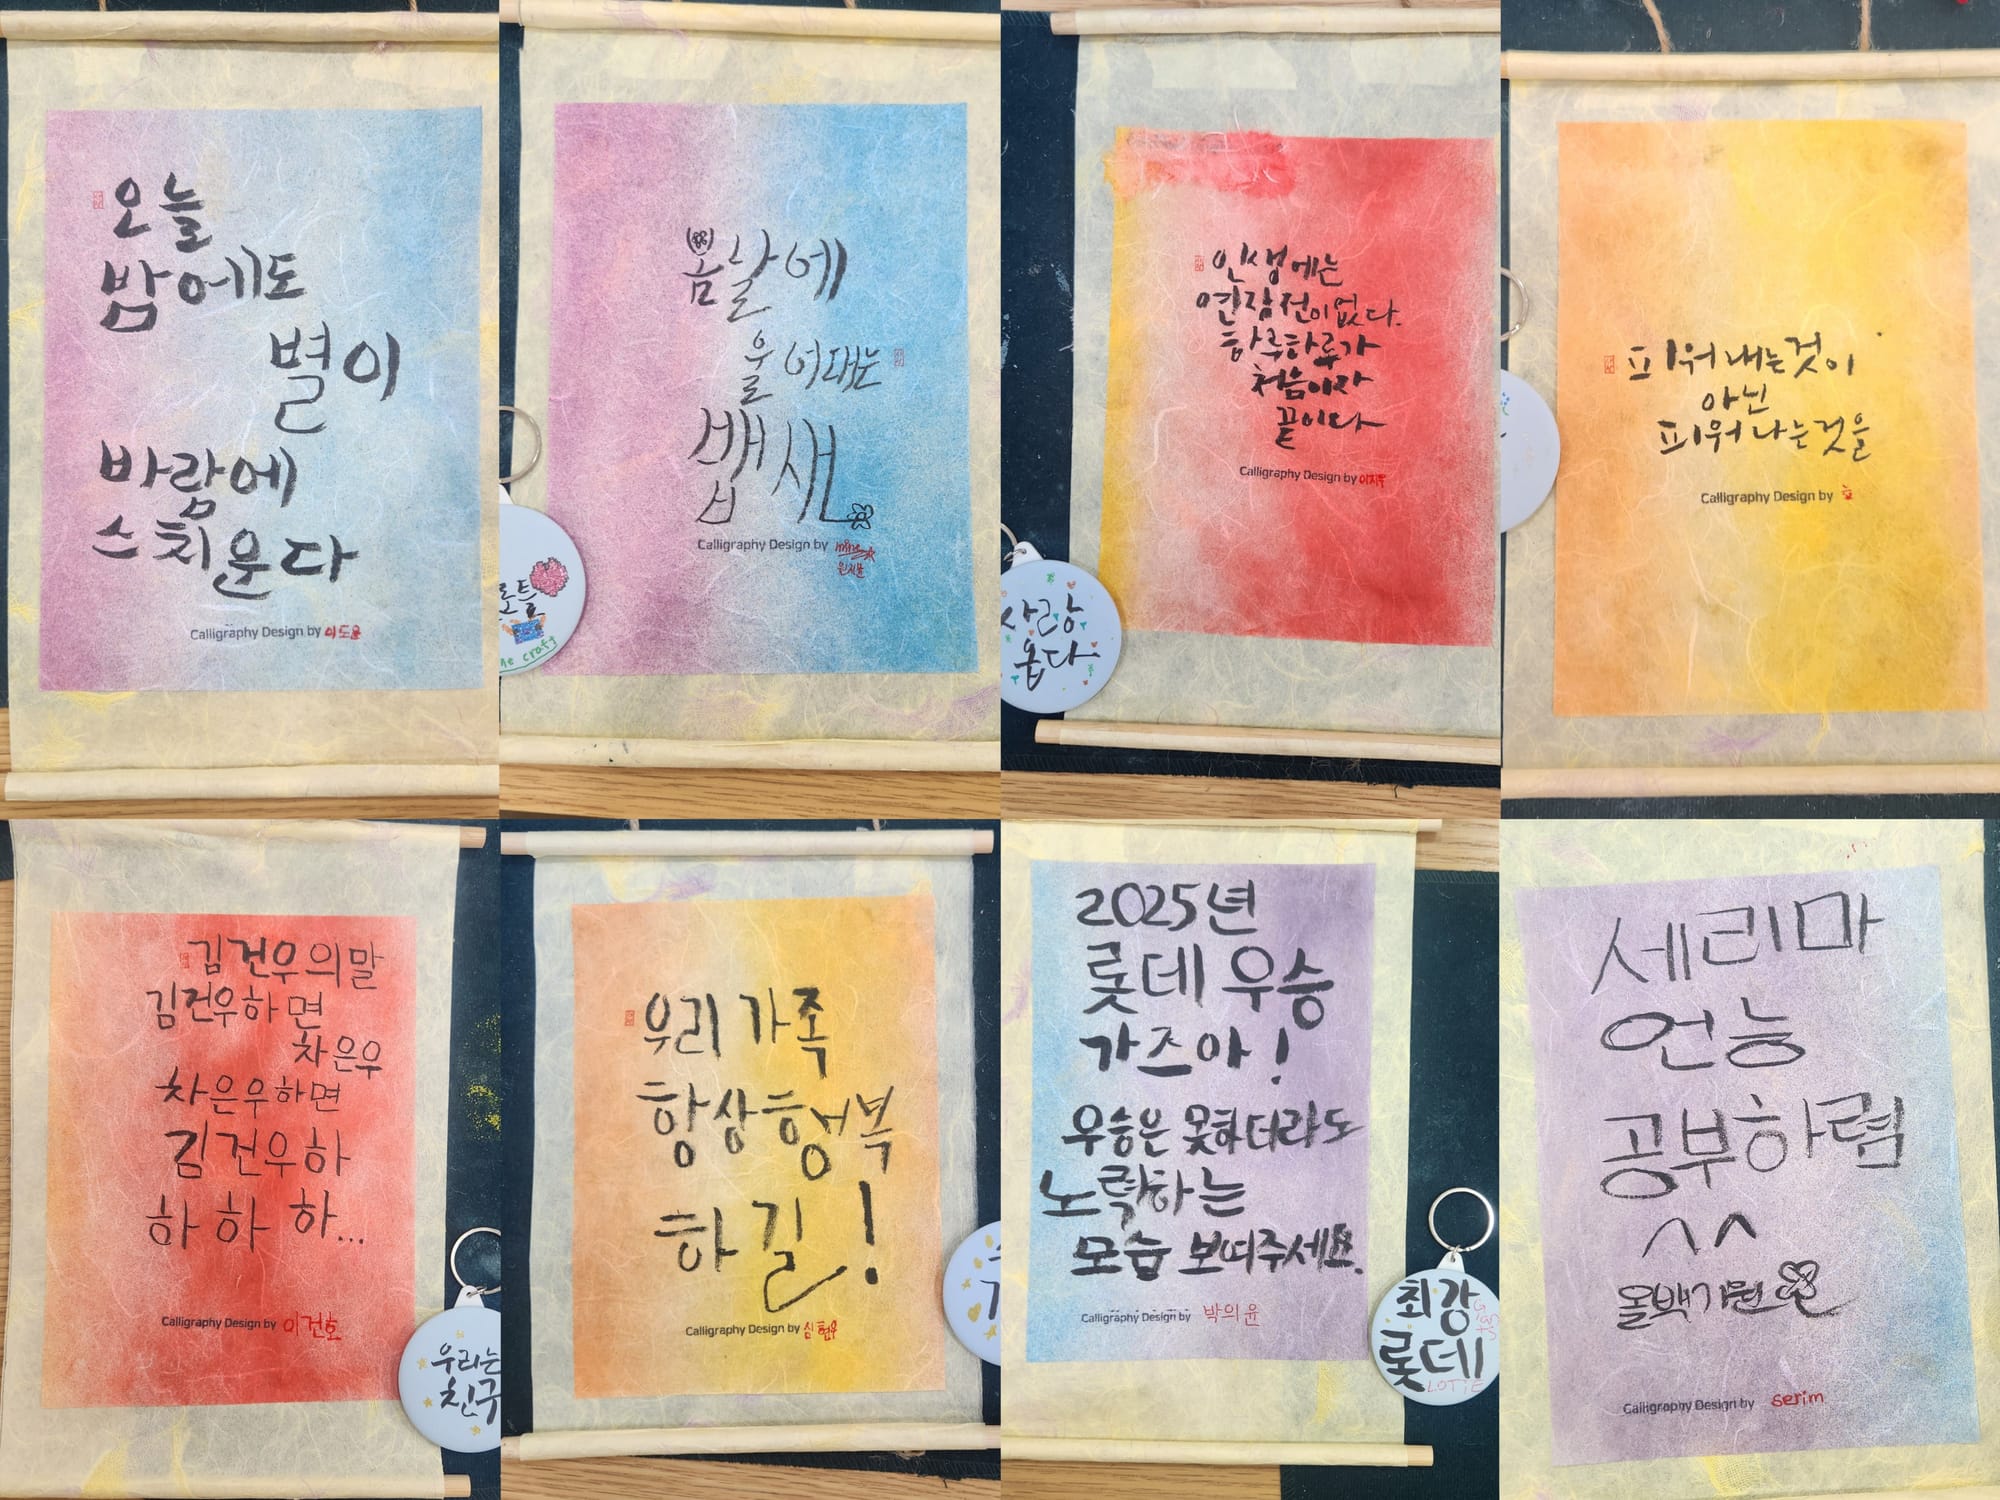 오늘
밤에도
별이
바람에
스치운다
Calligraphy Design by 이도윤
봄날에
울어대는
뱁새
Calligraphy Design by
인생에는
연장전이없다.
하루하루가
처음이자
끝이다
Calligraphy Design by 이지우
사랑
옵다
피워내는것이
아닌
피워나는것을
Calligraphy Design by
김건우의말
김건우하면
차은우
차은우하면
김건우하
하하하...
Calligraphy Design by 이건호
우리는
친구
우리가족
항상행복
하길!
Calligraphy Design by 심현우
2025년
롯데우승
가즈아!
우승은 못하더라도
노력하는
모습 보여주세요.
Calligraphy Design by 박의윤
최강
롯데
LOTTE
세리마
언능
공부하렴
^^
올백기원
Calligraphy Design by serim